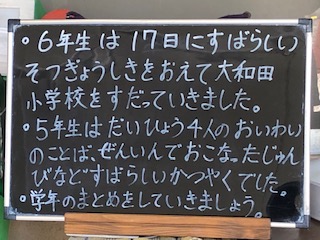 。6年生は17日にすばらしい
そつぎょうしきをおえて大和田
小学校をすだっていきました。
。5年生はだいひょう4人のおいわい
のことば、ぜんいんでおこなったじゅん
びなどすばらしいかつやくでした。
。学年のまとめをしていきましょう。